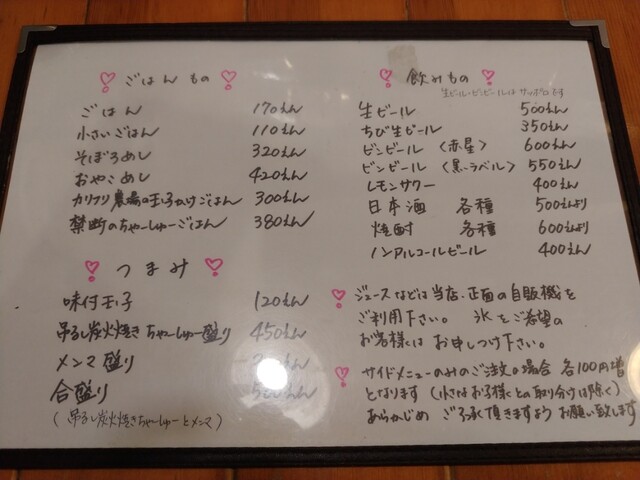 ごはんもの
ごはん 170えん
小さいごはん 110えん
そぼろめし 320えん
おやこめし 420えん
カリフリ農場の玉子かけごはん 300えん
禁断のちゃーしゅーごはん 380えん
つまみ
味付玉子 120えん
吊るし炭火焼きちゃーしゅー盛り 450えん
メンマ盛り
合盛り
(吊るし炭火焼きちゃーしゅーとメンマ)
飲みもの
生ビール・ビンビールは サッポロです
生ビール 500えん
ちび生ビール 350えん
ビンビール〈赤星〉 600えん
ビンビール〈黒ラベル〉 550えん
レモンサワー 400えん
日本酒 各種 500えんより
焼酎 各種 600えんより
ノンアルコールビール 400えん
ジュースなどは当店、正面の自販機を
ご利用下さい。 氷をご希望の
お客様は お申しつけ下さい。
サイドメニューのみのご注文の場合 各100円増
となります (小さなお子様との取り分けは除く)
あらかじめ ご了承頂きますよう お願い致します